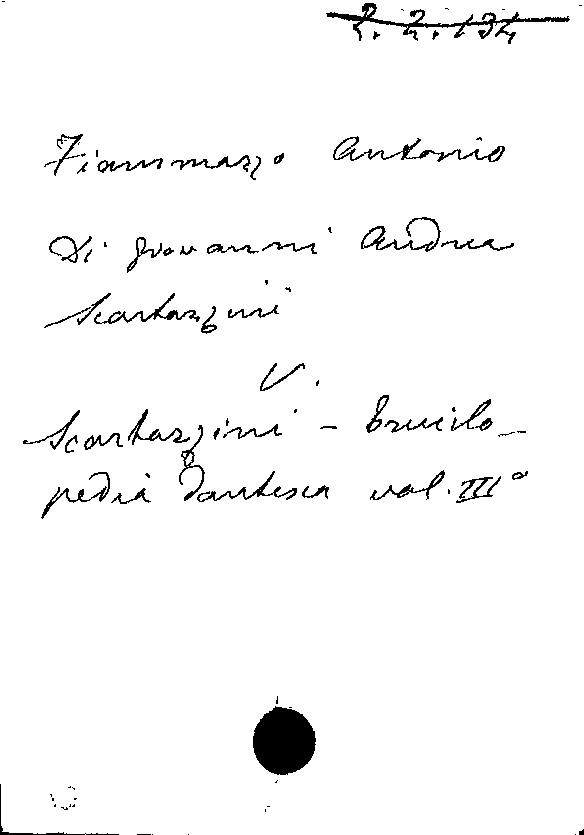 2.2.134
Fiammazzo Antonio
Di Giovanni Andrea
Scartazzini
V.
Scartazzini - Enciclo-
pedia dantesca vol. III°